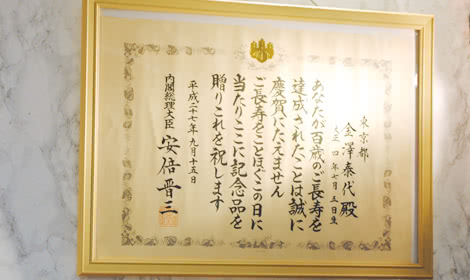 東京都
金澤泰代殿
大正四年七月五日生
あなたが百歳のご長寿を
達成されたことは誠に
慶賀にたえません
ご長寿をことほぐこの日に
当たりここに記念品を
贈りこれを祝します
平成二十七年九月十五日
内閣総理大臣 安倍晋三